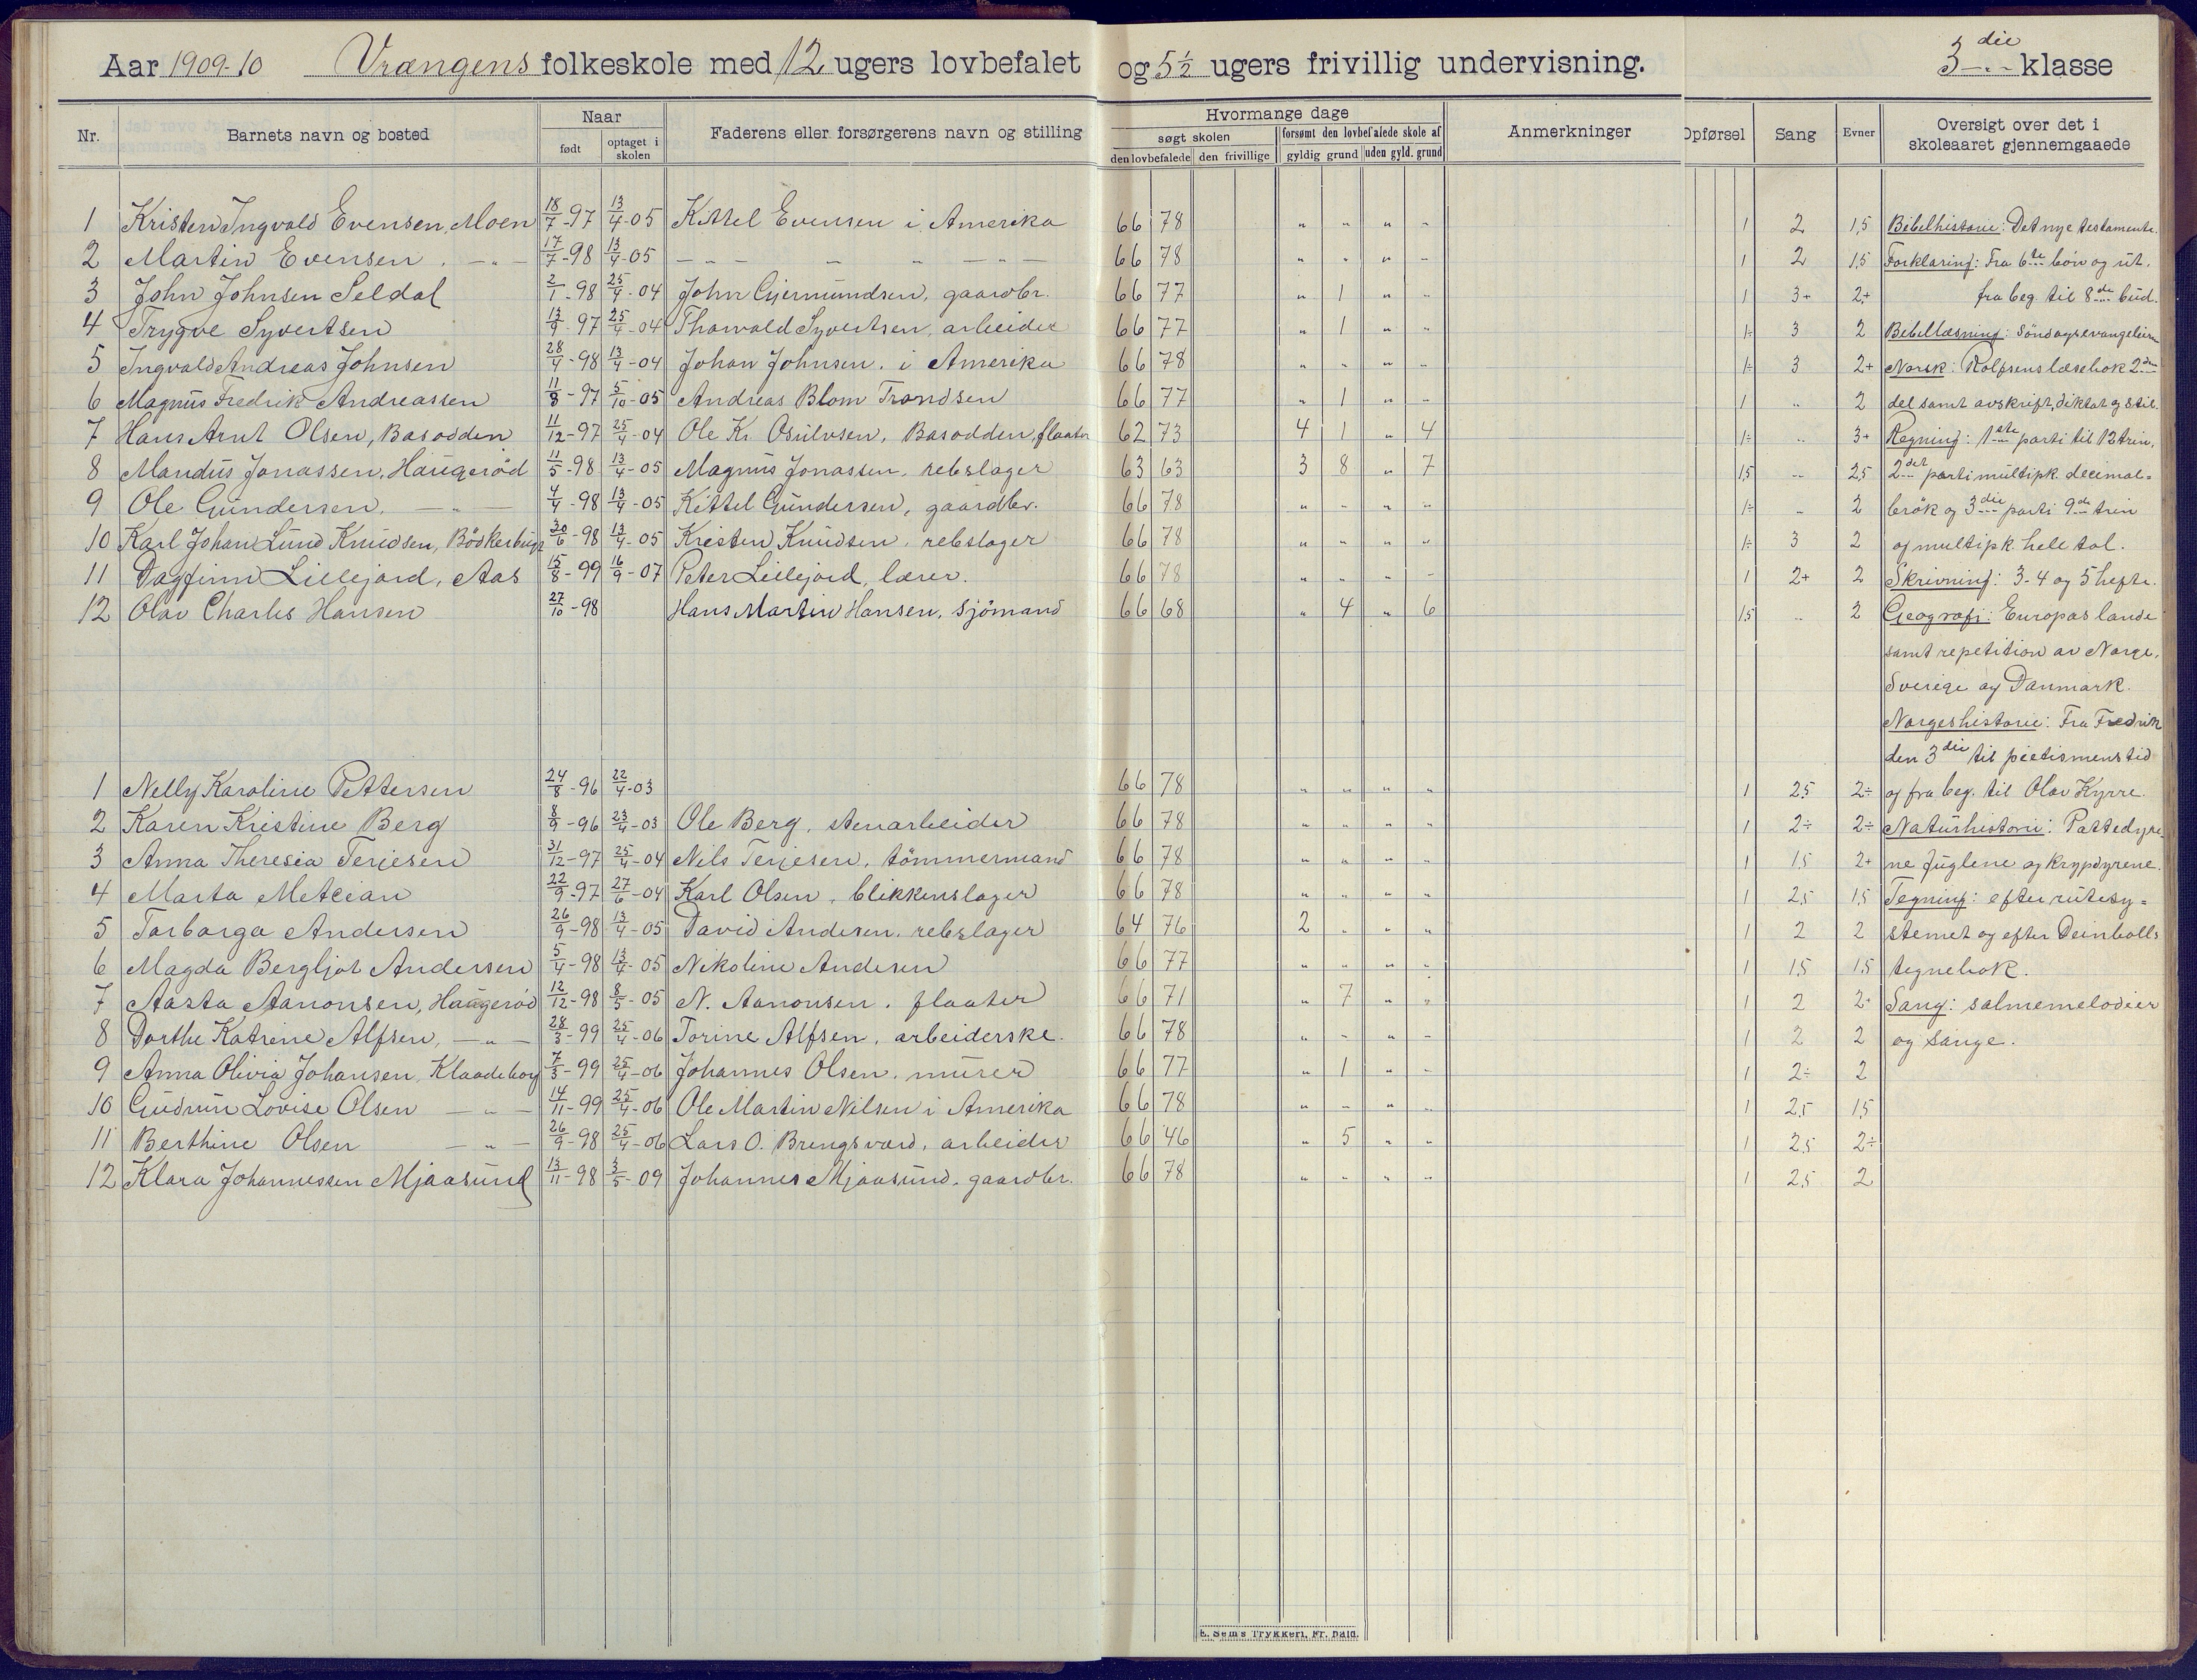 Aar 1909-10 Vrængens folkeskole med 12 ugers lovbefalet og 5½ ugers frivillig undervisning. 3die klasse
Nr. Barnets navn og bosted Naar født optaget i skolen Faderens eller forsørgerens navn og stilling Hvormange dage søgt skolen den lovbefalede den frivillige forsømt den lovbefalede skole af gyldig grund uden gyld. grund Anmerkninger Opførsel Sang Evner Oversigt over det i skoleaaret gjennemgaaede
1 Kristen Ingvald Evensen, Moen 18/7-97 13/4-05 Kittel Evensen i Amerika 66 78 " " " " 1 2 1,5 Bibelhistorie: Det nye testamente.
2 Martin Evensen, -"- 17/7-98 13/4-05 - " - - " - " - 66 78 " " " " 1 2 1,5 Forklaring: Fra 6te bön og ut.
3 John Johnsen Seldal 2/1-98 25/4-04 John Gjermundsen, gaardbr. 66 77 " 1 " " 1 3+ 2+ fra beg. til 8de bud.
4 Trygve Syvertsen 13/9-97 25/4-04 Thorvald Syvertsen, arbeider 66 77 " 1 " " 1÷ 3 2 Bibellæsning: Söndagsevangelierne
5 Ingvald Andreas Johnsen 28/4-98 13/4-04 Johan Johnsen, i Amerika 66 78 " " " " 1÷ 3 2+ Norsk: Rolfsens læsebok 2den
6 Magnus Fredrik Andreassen 11/8-97 5/10-05 Andreas Blom Trondsen 66 77 " 1 " " 1 " 2 del samt avskrift, diktat og stil.
7 Hans Arnt Olsen, Basodden 11/12-97 25/4-04 Ole Kr. Osulvsen, Basodden, flaater 62 73 4 1 " 4 1÷ " 3+ Regning: 1ste parti til 12 trin,
8 Mandus Jonassen, Haugeröd 11/5-98 13/4-05 Magnus Jonassen, rebslager 63 63 3 8 " 7 1,5 " 2,5 2det parti multipk. decimal=
9 Ole Gundersen, -"- 4/4-98 13/4-05 Kittel Gundersen, gaardbr. 66 78 " " " " 1÷ " 2 brök og 3die parti 9de trin
10 Karl Johan Lund Knudsen, 30/6-98 13/4-05 Kristen Knudsen, rebslager 66 78 " " " " 1÷ 3 2 og multipk. hele tal.
11 Dagfinn Lillejord, Aas 15/8-99 16/9-07 Peter Lillejord, lærer. 66 78 " " " " 1 2+ 2 Skrivning: 3-4 og 5 hefte.
12 Olav Charles Hansen 27/10-98 Hans Martin Hansen, sjömand 66 68 " 4 " 6 1,5 " 2 Geografi: Europas lande
samt repetition av Norge,
Sverige og Danmark.
Norgeshistorie: Fra Fredrik
den 3die til pietismens tid
1 Nelly Karoline Pettersen 24/8-96 22/4-03 66 78 " " " " 1 2,5 2÷ og fra beg. til Olav Kyrre.
2 Karen Kristine Berg 8/9-96 23/4-03 Ole Berg, stenarbeider 66 78 " " " " 1 2÷ 2÷ Naturhistorie: Pattedyre
3 Anna Theresia Terjesen 31/12-97 25/4-04 Nils Terjesen, tömmermand 66 78 " " " " 1 1,5 2+ ne fuglene og krypdyrene.
4 Marta Metcian 22/9-97 27/6-04 Karl Olsen, blikkenslager 66 78 " " " " 1 2,5 1,5 Tegning: efter rutesy=
5 Torborga Andersen 26/9-98 13/4-05 David Andersen, rebslager 64 76 2 " " " 1 2 2 stemet og efter Deinbolls
6 Magda Bergljot Andersen 5/4-98 13/4-05 Nikoline Andersen 66 77 " " " " 1 1,5 1,5 tegnebok.
7 Aasta Aanonsen, Haugeröd 12/12-98 8/5-05 N. Aanonsen, flaater 66 71 " 7 " " 1 2 2+ Sang: salmemelodier
8 Dorthe Katrine Alfsen, -"- 28/3-99 25/4-06 Torine Alfsen, arbeiderske. 66 78 " " " " 1 2 2 og sange.
9 Anna Olivia Johansen, Klaadeborg 7/3-99 25/4-06 Johannes Olsen, murer 66 77 " 1 " " 1 2÷ 2
10 Gudrun Lovise Olsen -"- 14/11-99 25/4-06 Ole Martin Nilsen i Amerika 66 78 " " " " 1 2,5 1,5
11 Berthine Olsen -"- 26/9-98 25/4-06 Lars O. Brengsværd, arbeider 66 46 " 5 " " 1 2,5 2÷
12 Klara Johannessen Mjaasund 13/11-98 3/5-09 Johannes Mjaasund, gaardbr. 66 78 " " " " 1 2,5 2
E. Sem's Trykkeri, Fr. hald.